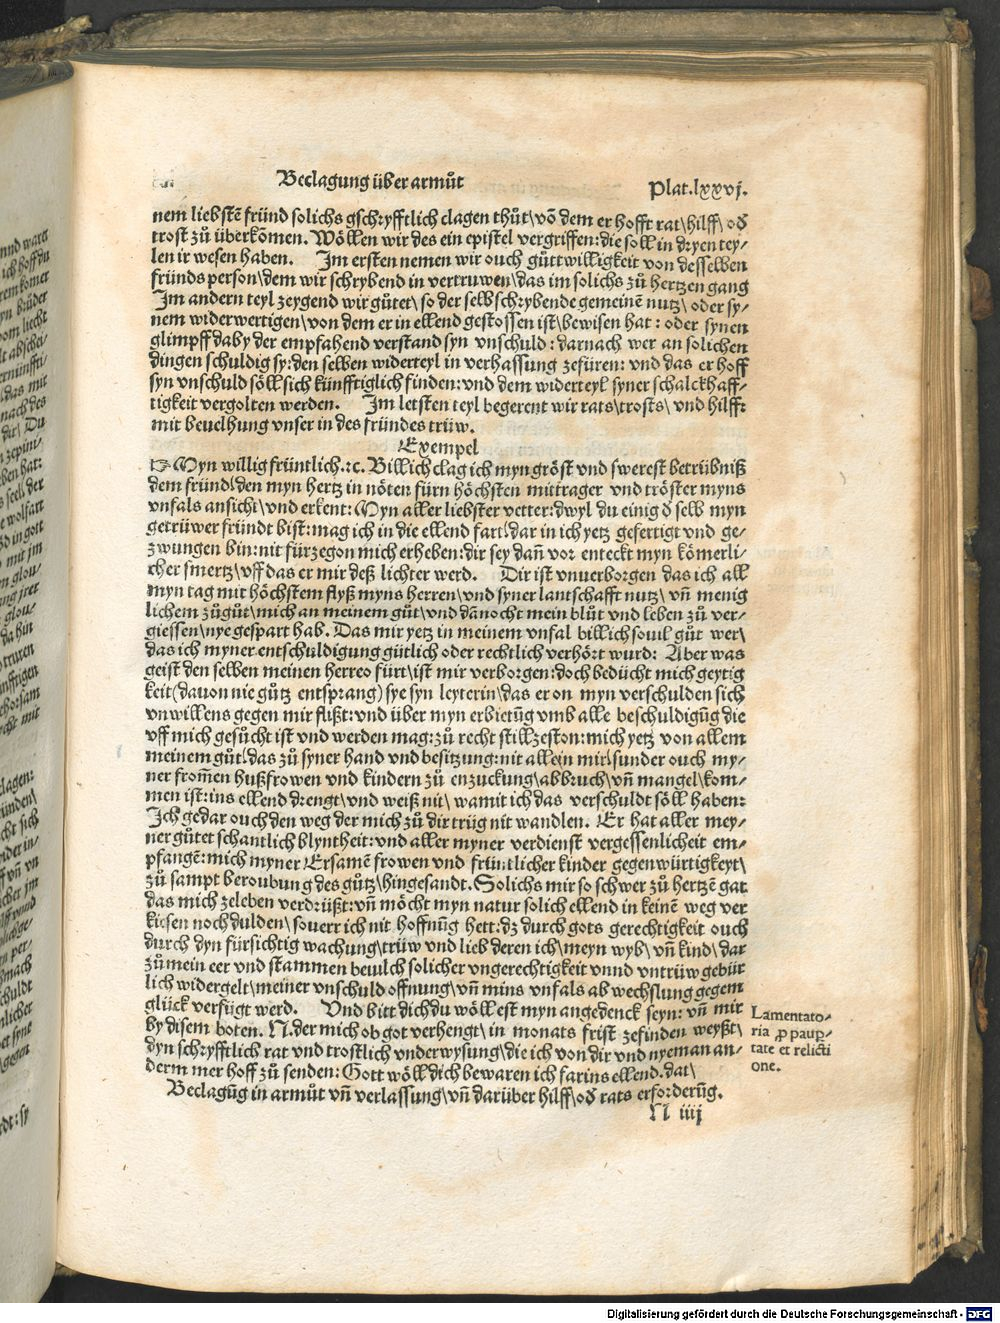 Beclagung über armůt
Plat.lxxvj.
nem liebstē fründ solichs gschryfftlich clagen thůt\ vō dem er hofft rat\ hilff\ oď
trost zů überkōmen. Wöllen wir des ein epistel vergriffen: die soll in dryen tey⸗
len ir wesen haben. Im ersten nemen wir ouch gůttwilligkeit von desselben
fründs person\ dem wir schrybend in vertruwen\ das im solichs zů hertzen gang
Im andern teyl zeygend wir gůtet\ so der selb schrybende gemeinē nutz\ oder sy⸗
nem widerwertigen\ von dem er in ellend gestossen ist\ bewisen hat: oder synen
glimpff da by der empfahend verstand syn vnschuld: darnach wer an solichen
dingen schuldig sy: den selben widerteyl in verhassung zefüren: vnd das er hoff
syn vnschuld söll sich künfftiglich finden: vnd dem widerteyl syner schalckhaff⸗
tigkeit vergolten werden. Im letsten teyl begerent wir rats\ trosts\ vnd hilff:
mit beuelhung vnser in des fründes trüw.
Exempel
☞ Myn willig früntlich.ꝛc. Billich clag ich myn gröst vnd swerest betrübniß
dem fründ\ den myn hertz in nöten fürn höchsten mittrager vnd tröster myns
vnfals ansicht\ vnd erkent: Myn aller liebster vetter: dwyl du einig ď selb myn
getrüwer fründt bist: mag ich in die ellend fart\ dar in ich yetz gefertigt vnd ge⸗
zwungen bin: nit fürzegon mich erheben: dir sey dañ vor enteckt myn kömerli⸗
cher smertz\ vff das er mir deß lichter werd. Dir ist vnuerborgen das ich all
myn tag mit höchstem flyß myns herren\ vnd syner lantschafft nutz\ vñ menig
lichem zůgůt\ mich an meinem gůt\ vnd dānocht mein blůt vnd leben zů ver⸗
giessen\ nye gespart hab. Das mir yetz in meinem vnfal billich souil gůt wer\
das ich myner entschuldigung gütlich oder rechtlich verhört wurd: Aber was
geist den selben meinen herreo fürt\ ist mir verborgen: doch bedücht mich geytig
keit (dauon nie gůtz entsprang) sye syn leyterin\ das er on myn verschulden sich
vnwillens gegen mir flißt: vnd über myn erbietūg vmb alle beschuldigūg die
vff mich gesůcht ist vnd werden mag: zů recht still zeston: mich yetz von allem
meinem gůt\ das zů syner hand vnd besitzung: nit allein mir\ sunder ouch my⸗
ner from̄en hußfrowen vnd kindern zů enzuckung\ abbruch\ vñ mangel\ kom⸗
men ist: ins ellend drengt\ vnd weiß nit\ wamit ich das verschuldt söll haben:
Ich gedar ouch den weg der mich zů dir trüg nit wandlen. Er hat aller mey⸗
ner gůtet schantlich blyntheit: vnd aller myner verdienst vergessenlicheit em⸗
pfangē: mich myner Ersamē frowen vnd früntlicher kinder gegenwürtigkeyt\
zů sampt beroubung des gůtz\ hingesandt. Solichs mir so schwer zů hertzē gat
das mich zeleben verdrüßt: vñ möcht myn natur solich ellend in keinē weg ver
kiesen noch dulden\ souerr ich nit hoffnūg hett: dz durch gots gerechtigkeit ouch
durch dyn fürsichtig wachung\ trüw vnd lieb deren ich\ meyn wyb\ vñ kind\ dar
zů mein eer vnd stammen beuulch solicher vngerechtigkeit vnnd vntrüw gebür
lich widergelt\ meiner vnschuld offnung\ vñ mins vnfals ab wechslung gegem
glück verfügt werd. Vnd bitt dich du wöllest myn angedenck seyn: vñ mir
by disem boten. N. der mich ob got verhengt\ in monats frist zefinden weyßt\
dyn schryfftlich rat vnd trostlich vnderwysung\ die ich von dir vnd nyeman an⸗
derm mer hoff zů senden: Gott wöll dich bewaren ich far ins ellend. dat\
Beclagūg in armůt vñ verlassung\ vñ darüber hilff\ oď rats erforderūg.
N iiij
Lamentato⸗
ria ꝓ pauꝑ⸗
tate et relicti
one.
Digitalisierung gefördert durch die Deutsche Forschungsgemeinschaft - DFG